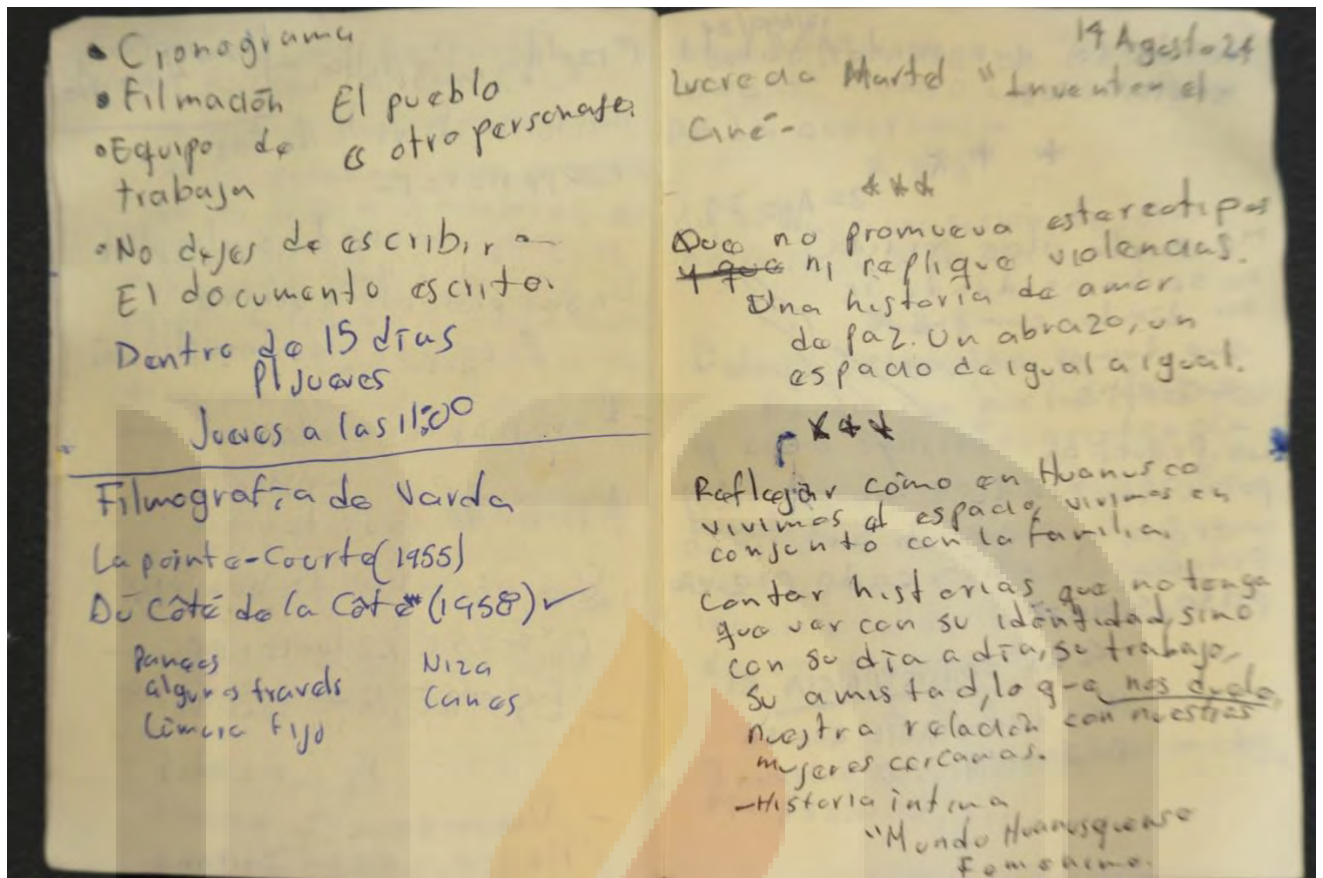 • Cronograma
• Filmación
El pueblo
es otro personaje.
• Equipo de
trabajo
• No dejes de escribir
El documento escrito.
Dentro de 15 días
Pl Jueves
Jueves a las 11:00
Filmografía de Varda
La pointe-Courte (1955)
Du Côté de la Côte (1958) ✓
Paneos
algunos travels
Cámara fijo
Niza
Canes
14 Agosto 24
Lucrecia Martel "Inventen el
Cine-
***
Que no promueva estereotipos
y que ni replique violencias.
Una historia de amor
de paz. Un abrazo, un
espacio de igual a igual.
***
Reflejar cómo en Huanusco
vivimos el espacio, vivimos en
conjunto con la familia.
Contar historias que no tenga
que ver con su identidad, sino
con su día a día, su trabajo,
su amistad, lo que nos duele,
nuestra relación con nuestras
mujeres cercanas.
-Historia íntima
"Mundo Huanusquense
Femenino.